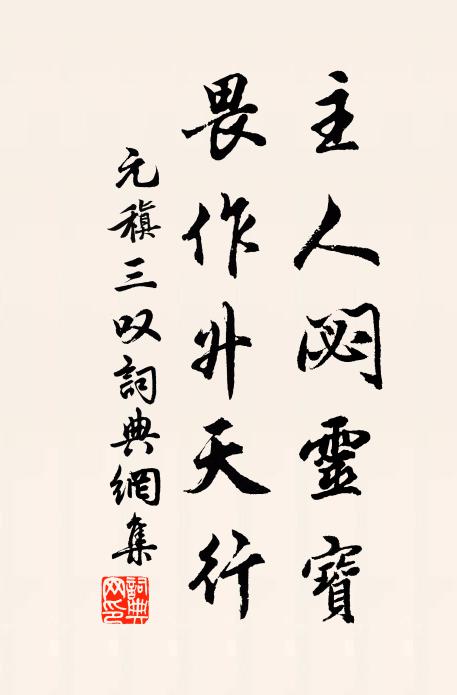 主人閟靈寶
畏作升天行
元稹三叹詞典網集
詞典网印